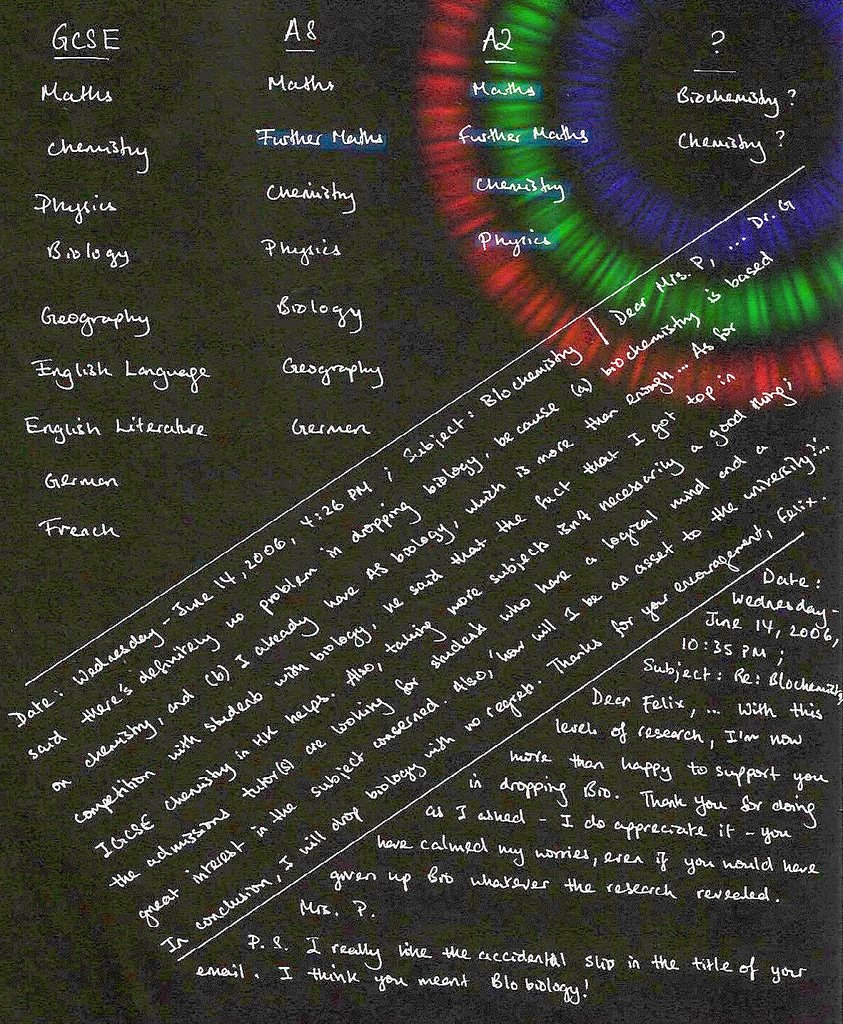 GCSE
Maths
Chemistry
Physics
Biology
Geography
English Language
English Literature
German
French
AS
Maths
Further Maths
Chemistry
Physics
Biology
Geography
German
A2
Maths
Further Maths
Chemistry
Physics
?
Biochemistry?
Chemistry?
Date: Wednesday - June 14, 2006, 4:26 PM ; Subject: Blochemistry / Dear Mrs. P, ... Dr. G
said there's definitely no problem in dropping biology, because (a) biochemistry is based
on chemistry, and (b) I already have AS biology, which is more than enough... As for
competition with students with biology, he said that the fact that I got top in
IGCSE chemistry in HK helps. Also, taking more subject isn't necessarily a good thing;
the admissions tutor(s) are looking for students who have a logical mind and a
great interest in the subject concerned. Also, 'how will I be an asset to the university?'...
In conclusion, I will drop biology with no regret. Thanks for your encouragement, Felix.
Date:
Wednesday -
June 14, 2006,
10:35 PM ;
Subject: Re: Blochemistry
Dear Felix, ... With this
levels of research, I'm now
more than happy to support you
in dropping Bio. Thank you for doing
as I asked - I do appreciate it - you
have calmed my worries, even if you would have
given up Bio whatever the research revealed.
Mrs. P.
P.S. I really like the accidental slip in the title of your
email. I think you meant Blobiology!